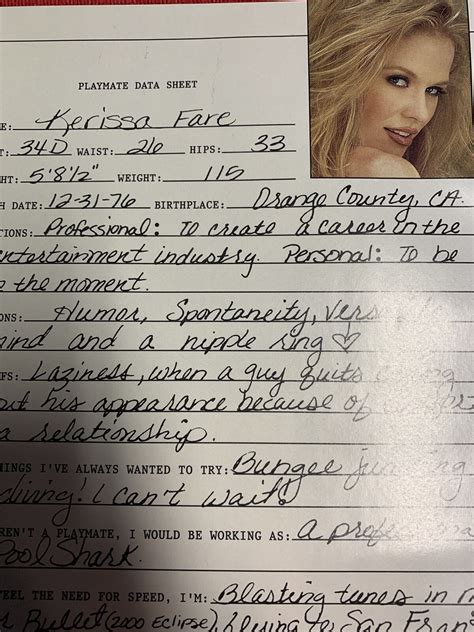 PLAYMATE DATA SHEET
E: Kerissa Fare
T: 34D WAIST: 26 HIPS: 33
HT: 5'8½" WEIGHT: 115
H DATE: 12-31-76 BIRTHPLACE: Orange County, CA.
TIONS: Professional: To create a career in the
entertainment industry. Personal: To be
the moment.
ONS: Humor, Spontaneity,
mind and a nipple ring ♡
FS: Laziness, when a guy quits
out his appearance because of
a relationship.
HINGS I'VE ALWAYS WANTED TO TRY: Bungee
diving! I can't wait!
REN'T A PLAYMATE, I WOULD BE WORKING AS: a
Pool Shark.
FEEL THE NEED FOR SPEED, I'M: Blasting tunes in
Bullet (2000 Eclipse), to San Fran